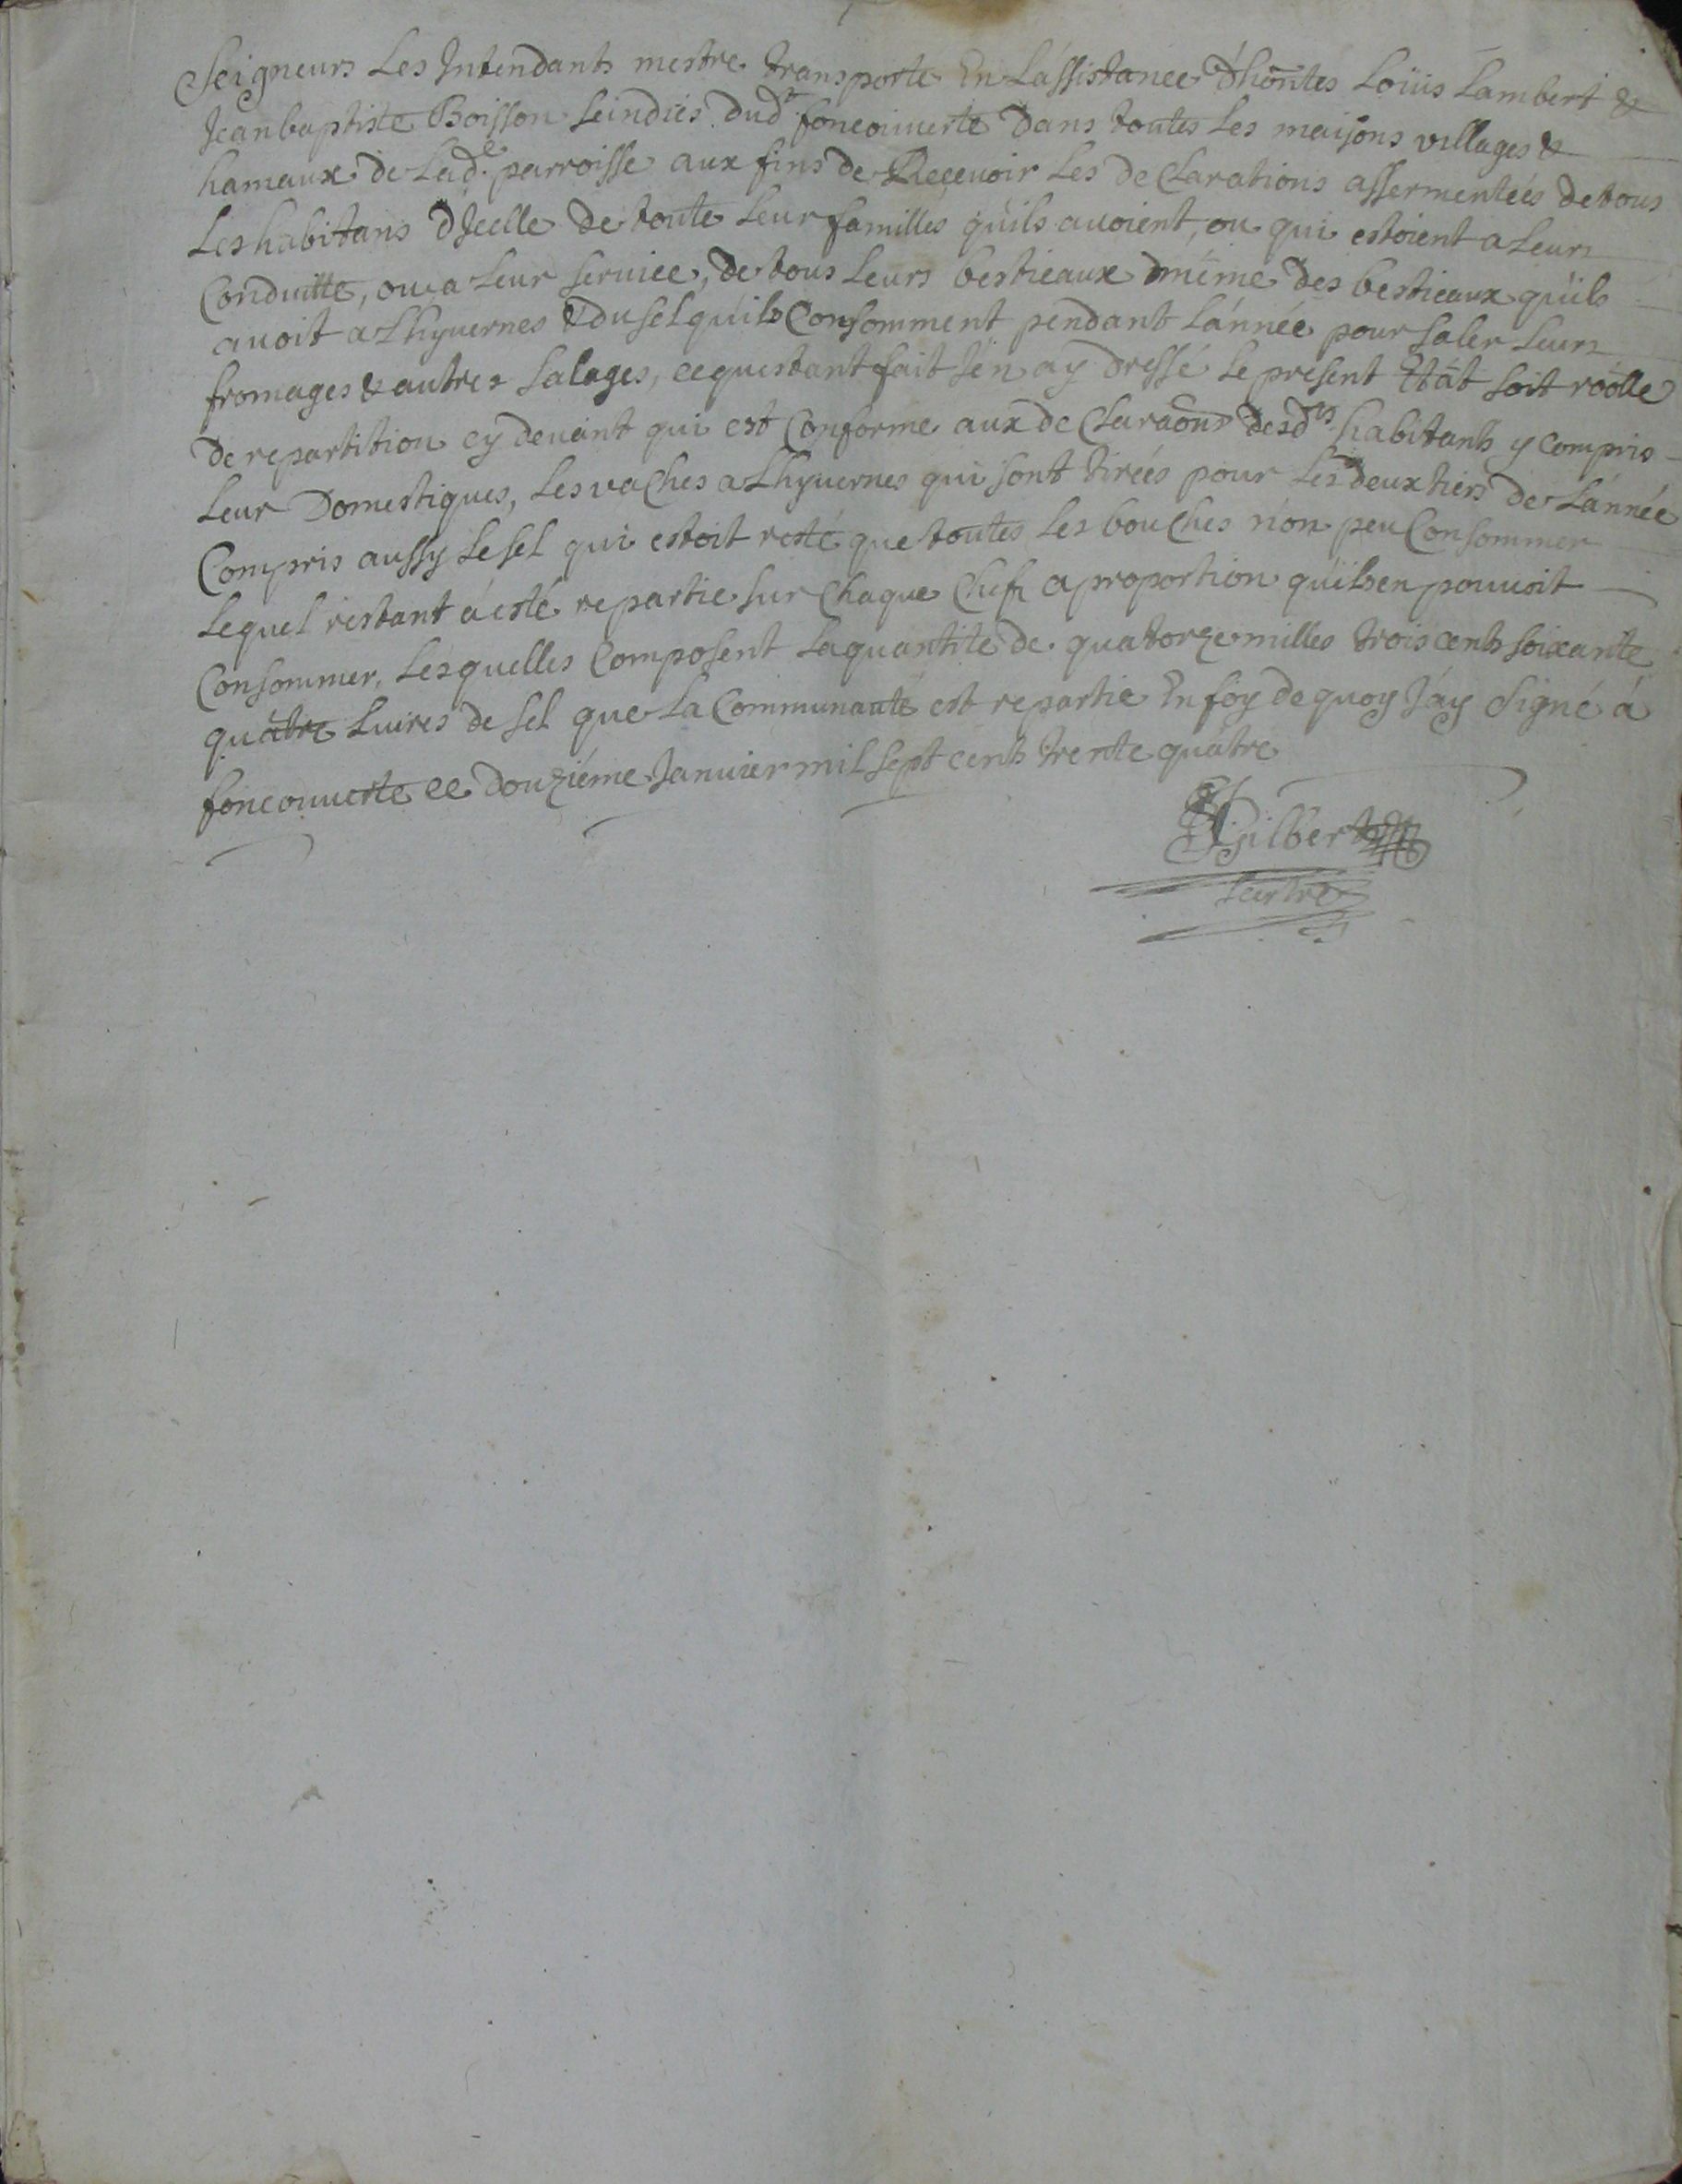 Seigneurs Les Intendants mestre transporte En L'assistance d'honñtes Loüis Lambert &
Jean baptiste Boisson seindics dud.t foncouuerte Dans toutes Les maisons villages &
hameaux de Lad.e parroisse aux fins de Reçeuoir Les de Clarations assermenteés de tous
Les habitans d'Icelle de toute Leur familles qu'ils auoient, ou qui estoient a Leurs
Conduitte, ou a Leur seruice, de tous Leurs bestieaux même des bestieaux qu'ils
auoit a Lhyuernes & du sel qu'ils Consomment pendant L'année pour saler Leurs
fromages & autres salages, ce questant fait J'en ay dressé Le present Etat soit roolle
De repartition cy deuant qui est Conforme aux de Claraõns desd.ts habitants y compris
Leur Domestiques, Les vaches a Lhyuernes qui sont tireés pour Les deux tiers de L'année
Compris aussy Le sel qui estoit resté que toutes Les bouches n'on peu Consommer
Lequel restant a esté repartie sur Chaque Chefs a proportion qu'ils en pouuoit
Consommer, Lesquelles Composent La quantité de quatorze milles trois cents soixante
quatre Liures de sel que La Communauté est repartie En foy de quoy J'ay signé á
foncouuerte ce Douziéme Januier mil sept cents trente quatre
Gilbert